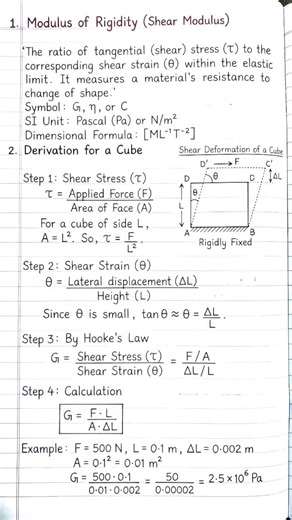 1. Modulus of Rigidity (Shear Modulus)
'The ratio of tangential (shear) stress (τ) to the
corresponding shear strain (θ) within the elastic
limit. It measures a material's resistance to
change of shape.'
Symbol: G, η, or C
SI Unit: Pascal (Pa) or N/m²
Dimensional Formula: [ML⁻¹T⁻²]
2. Derivation for a Cube
Shear Deformation of a Cube
D' → F C'
D θ D ΔL
θ
L
A B
Rigidly Fixed
Step 1: Shear Stress (τ)
τ = Applied Force (F) / Area of Face (A)
For a cube of side L,
A = L². So, τ = F / L².
Step 2: Shear Strain (θ)
θ = Lateral displacement (ΔL) / Height (L)
Since θ is small, tanθ ≈ θ = ΔL / L.
Step 3: By Hooke's Law
G = Shear Stress (τ) / Shear Strain (θ) = F/A / ΔL/L
Step 4: Calculation
G = F·L / A·ΔL
Example: F = 500 N, L = 0·1 m, ΔL = 0·002 m
A = 0·1² = 0·01 m²
G = 500·0·1 / 0·01·0·002 = 50 / 0·00002 = 2·5 × 10⁶ Pa